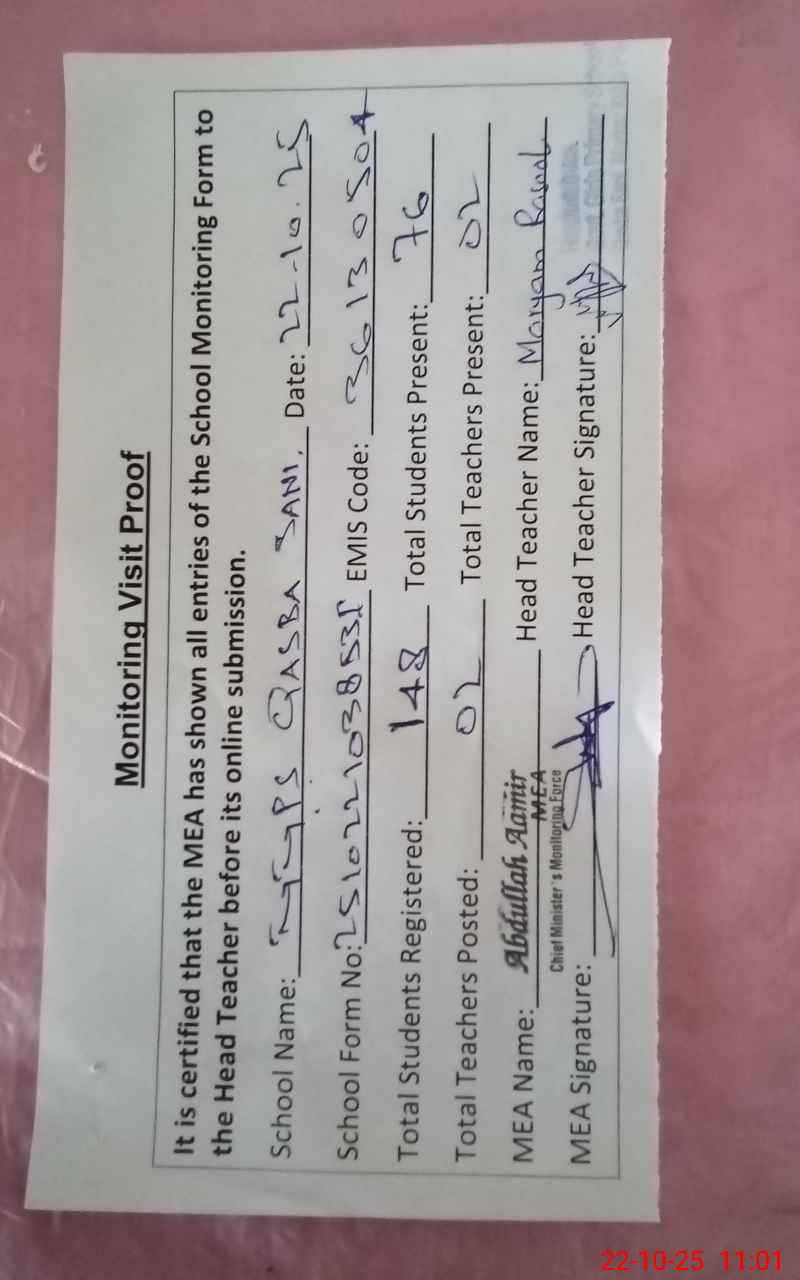 Monitoring Visit Proof
It is certified that the MEA has shown all entries of the School Monitoring Form to
the Head Teacher before its online submission.
School Name: GGPS QASBA SANI. Date: 22-10.25
School Form No: EMIS Code: 36130504
Total Students Registered: 148 Total Students Present: 76
Total Teachers Posted: 02 Total Teachers Present: 02
MEA Name: Abdullah Aamir Head Teacher Name: Maryam Rasool
MEA
Chief Minister's Monitoring Force
MEA Signature: Head Teacher Signature:
22-10-25 11:01